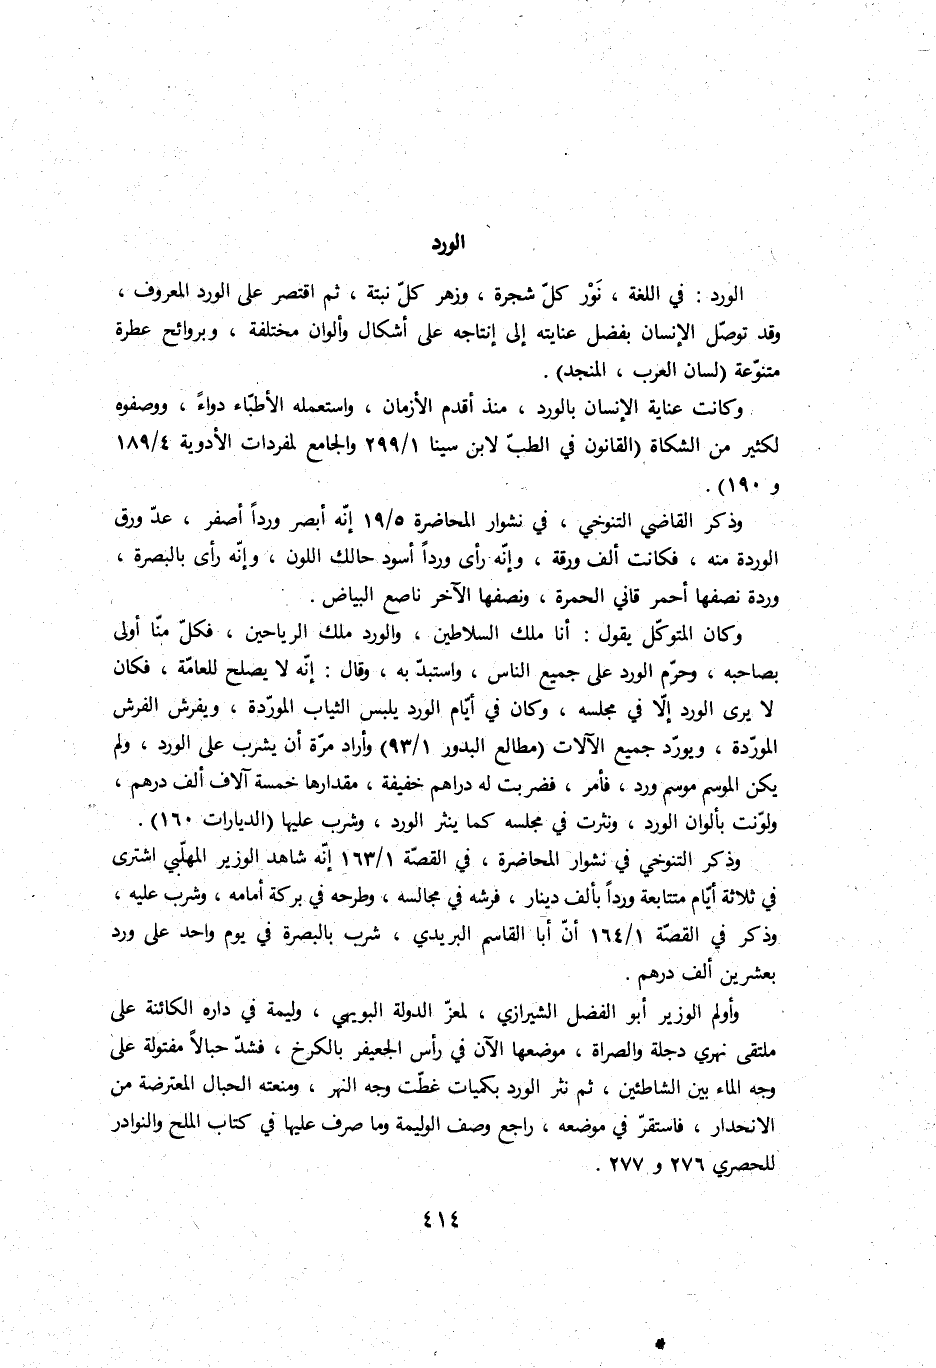 الورد
الورد : في اللغة ، نَوْر كلّ شجرة ، وزهر كلّ نبتة ، ثم اقتصر على الورد المعروف ،
وقد توصّل الإنسان بفضل عنايته إلى إنتاجه على أشكال وألوان مختلفة ، وبروائح عطرة
متنوّعة (لسان العرب ، المنجد) .
وكانت عناية الإنسان بالورد ، منذ أقدم الأزمان ، واستعمله الأطبّاء دواءً ، ووصفوه
لكثير من الشكاة (القانون في الطبّ لابن سينا ٢٩٩/١ والجامع لمفردات الأدوية ١٨٩/٤
و ١٩٠) .
وذكر القاضي التنوخي ، في نشوار المحاضرة ١٩/٥ إنّه أبصر ورداً أصفر ، عدّ ورق
الوردة منه ، فكانت ألف ورقة ، وإنّه رأى ورداً أسود حالك اللون ، وإنّه رأى بالبصرة ،
وردة نصفها أحمر قاني الحمرة ، ونصفها الآخر ناصع البياض .
وكان المتوكّل يقول : أنا ملك السلاطين ، والورد ملك الرياحين ، فكلّ منّا أولى
بصاحبه ، وحرّم الورد على جميع الناس ، واستبدّ به ، وقال : إنّه لا يصلح للعامّة ، فكان
لا يرى الورد إلّا في مجلسه ، وكان في أيّام الورد يلبس الثياب المورّدة ، ويفرش الفرش
المورّدة ، ويورّد جميع الآلات (مطالع البدور ٩٣/١) وأراد مرّة أن يشرب على الورد ، ولم
يكن الموسم موسم ورد ، فأمر ، فضربت له دراهم خفيفة ، مقدارها خمسة آلاف ألف درهم ،
ولوّنت بألوان الورد ، ونثرت في مجلسه كما ينثر الورد ، وشرب عليها (الديارات ١٦٠) .
وذكر التنوخي في نشوار المحاضرة ، في القصّة ١٦٣/١ إنّه شاهد الوزير المهلّبي اشترى
في ثلاثة أيّام متتابعة ورداً بألف دينار ، فرشه في مجالسه ، وطرحه في بركة أمامه ، وشرب عليه ،
وذكر في القصّة ١٦٤/١ أنّ أبا القاسم البريدي ، شرب بالبصرة في يوم واحد على ورد
بعشرين ألف درهم .
وأولم الوزير أبو الفضل الشيرازي ، لمعزّ الدولة البويهي ، وليمة في داره الكائنة على
ملتقى نهري دجلة والصراة ، موضعها الآن في رأس الجعيفر بالكرخ ، فشدّ حبالاً مفتولة على
وجه الماء بين الشاطئين ، ثم نثر الورد بكميات غطّت وجه النهر ، ومنعته الحبال المعترضة من
الانحدار ، فاستقرّ في موضعه ، راجع وصف الوليمة وما صرف عليها في كتاب الملح والنوادر
للحصري ٢٧٦ و ٢٧٧ .
٤١٤